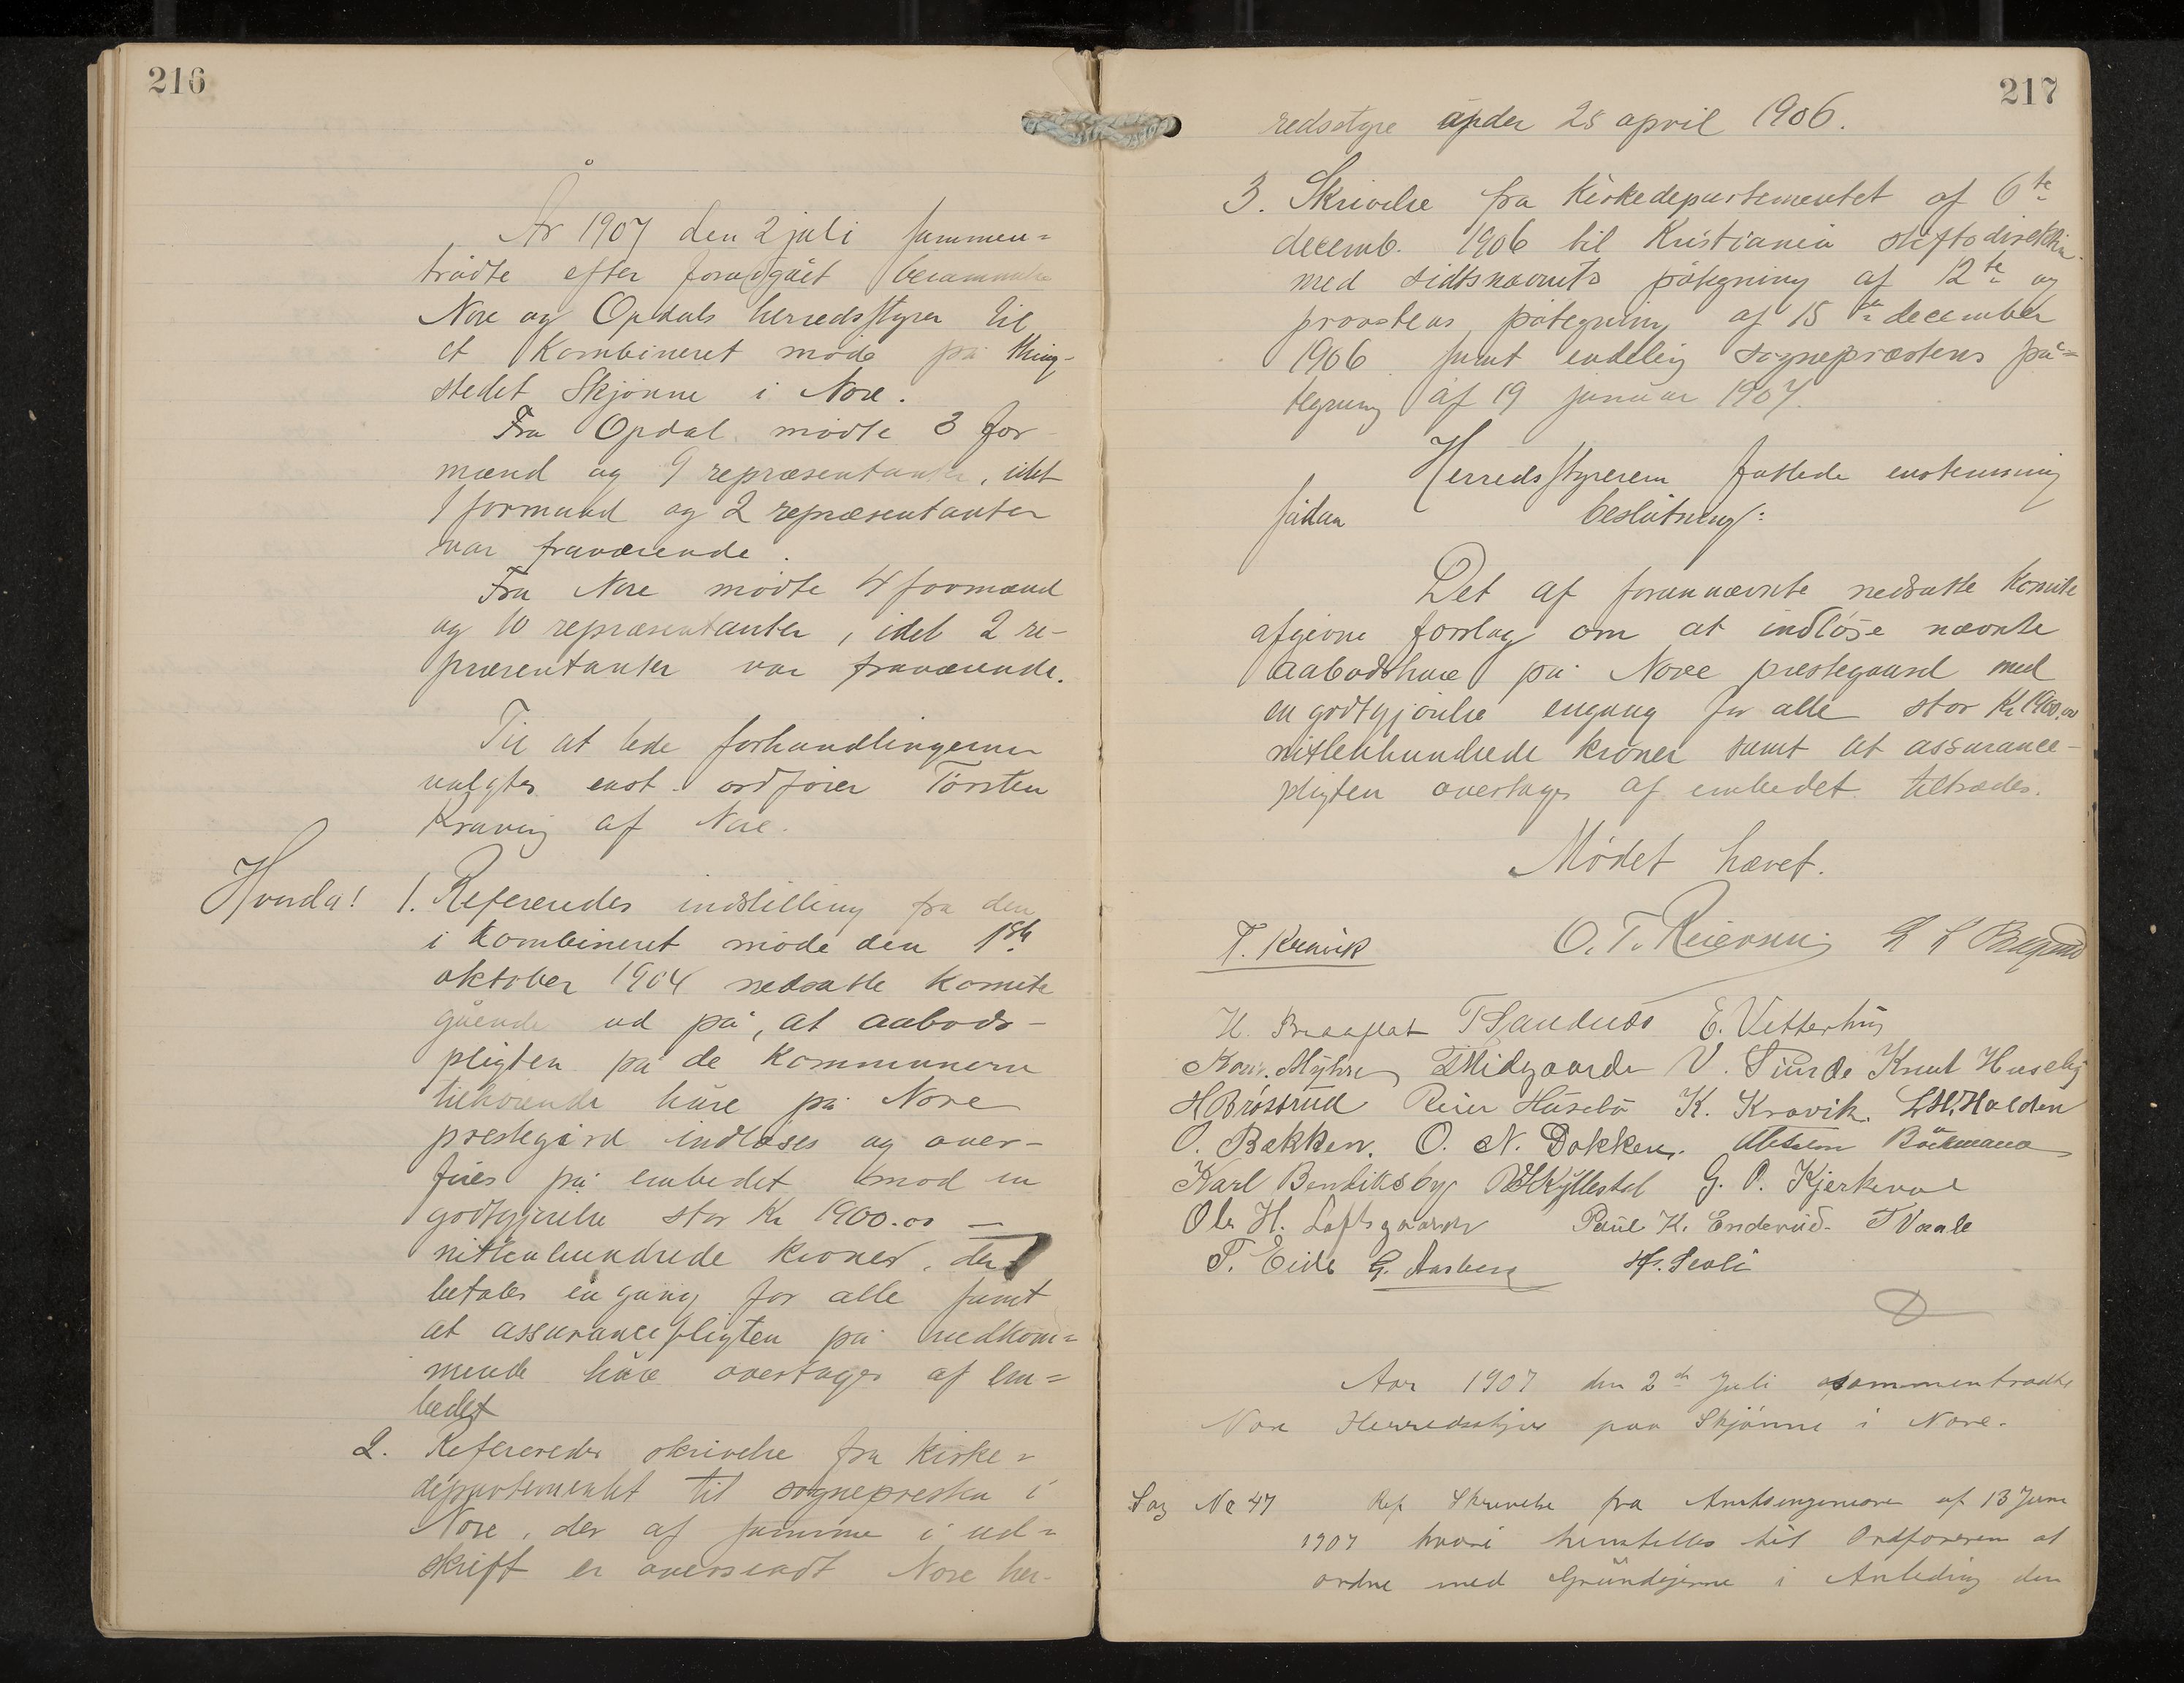 216
År 1907 den 2 juli sammen=
trådte efter foregået berammelse
Nore og Opdals herredsstyrer til
et kombineret møde på thing-
stedet Skjönne i Nore.
Fra Opdal mødte 3 for
mænd og 9 repræsentanter, idet
1 formand og 2 repræsentanter
var fraværende.
Fra Nore mødte 4 formænd
og 10 repræsentanter, idet 2 re-
præsentanter var fraværende.
Til at lede forhandlingerne
valgtes enst. ordfører Torsten
Kravig af Nore.
Hvorda! 1. Refereredes indstilling fra den
i kombineret møde den 18de
oktober 1904 nedsatte komite
gående ud på, at aabods-
pligten på de kommunerne
tilhørende huse på Nore
prestegård indløses og over-
føres på embedet mod en
godtgjørelse stor Kr 1900.00 —
nittenhundrede kroner, der
betales én gang for alle samt
at assurancepligten på vedkom=
mende huse overtages af em=
bedet
2. Refereredes skrivelse fra kirke=
departementet til sognepresten i
Nore, der af samme i ud=
skrift er oversendt Nore her-
217
redsstyre under 28 april 1906.
3. Skrivelse fra Kirkedepartementet af 6te
decemb. 1906 til Kristiania stiftsdirektion
med sidstnævnts påtegning af 12te og
provstens påtegning af 15de december
1906 samt endelig sogneprestens på=
tegning af 19 januar 1907.
Herredsstyrerne fattede enstemmig
sådan beslutning:
Det af forannævnte nedsatte komite
afgivne forslag om at indløse nævnte
aabodshuse på Nore prestegaard med
en godtgjørelse engang for alle stor Kr 1900.00
nittenhundrede kroner samt at assurance-
pligten overtages af embedet tiltrædes.
Mødet hævet.
T. Kravik O. T. Reiersen L L
H. Braaflat T Sandnes E. Vetterhus
Myhre T Midgaarden V. Sunde Knut Huseby
H Brøstrud Reier Húsebö K. Kravik. L.H. Holden
O. Bakken. O. N. Dokken. Böckmann
Karl Bendiksby G. O. Kjerkevol
Ole H. Loftsgaarden Paul K. Enderud. T Vaale
T. Eide G. Aasberg Seoli
Aar 1907 den 2de Juli sammentraadte
Nore Herredsstyre paa Skjönne i Nore.
Sag No 47 Ref Skrivelse fra Amtsingeniøren af 13 Juni
1907 hvori henstilles til Ordføreren at
ordne med Grundeierne i Anledning den